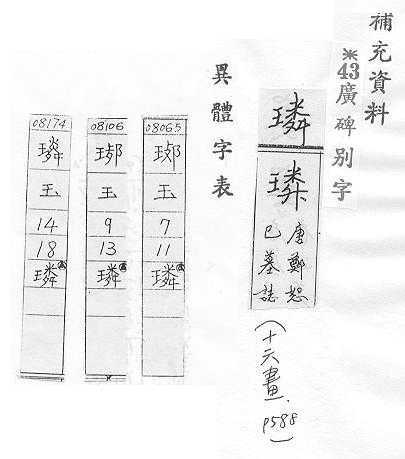 補充資料
※43廣碑別字
璘
唐鄭恕
已墓誌
(十六畫. p588)
異體字表
08065
玉
7
11
璘
08106
玉
9
13
璘
08174
玉
14
18
璘